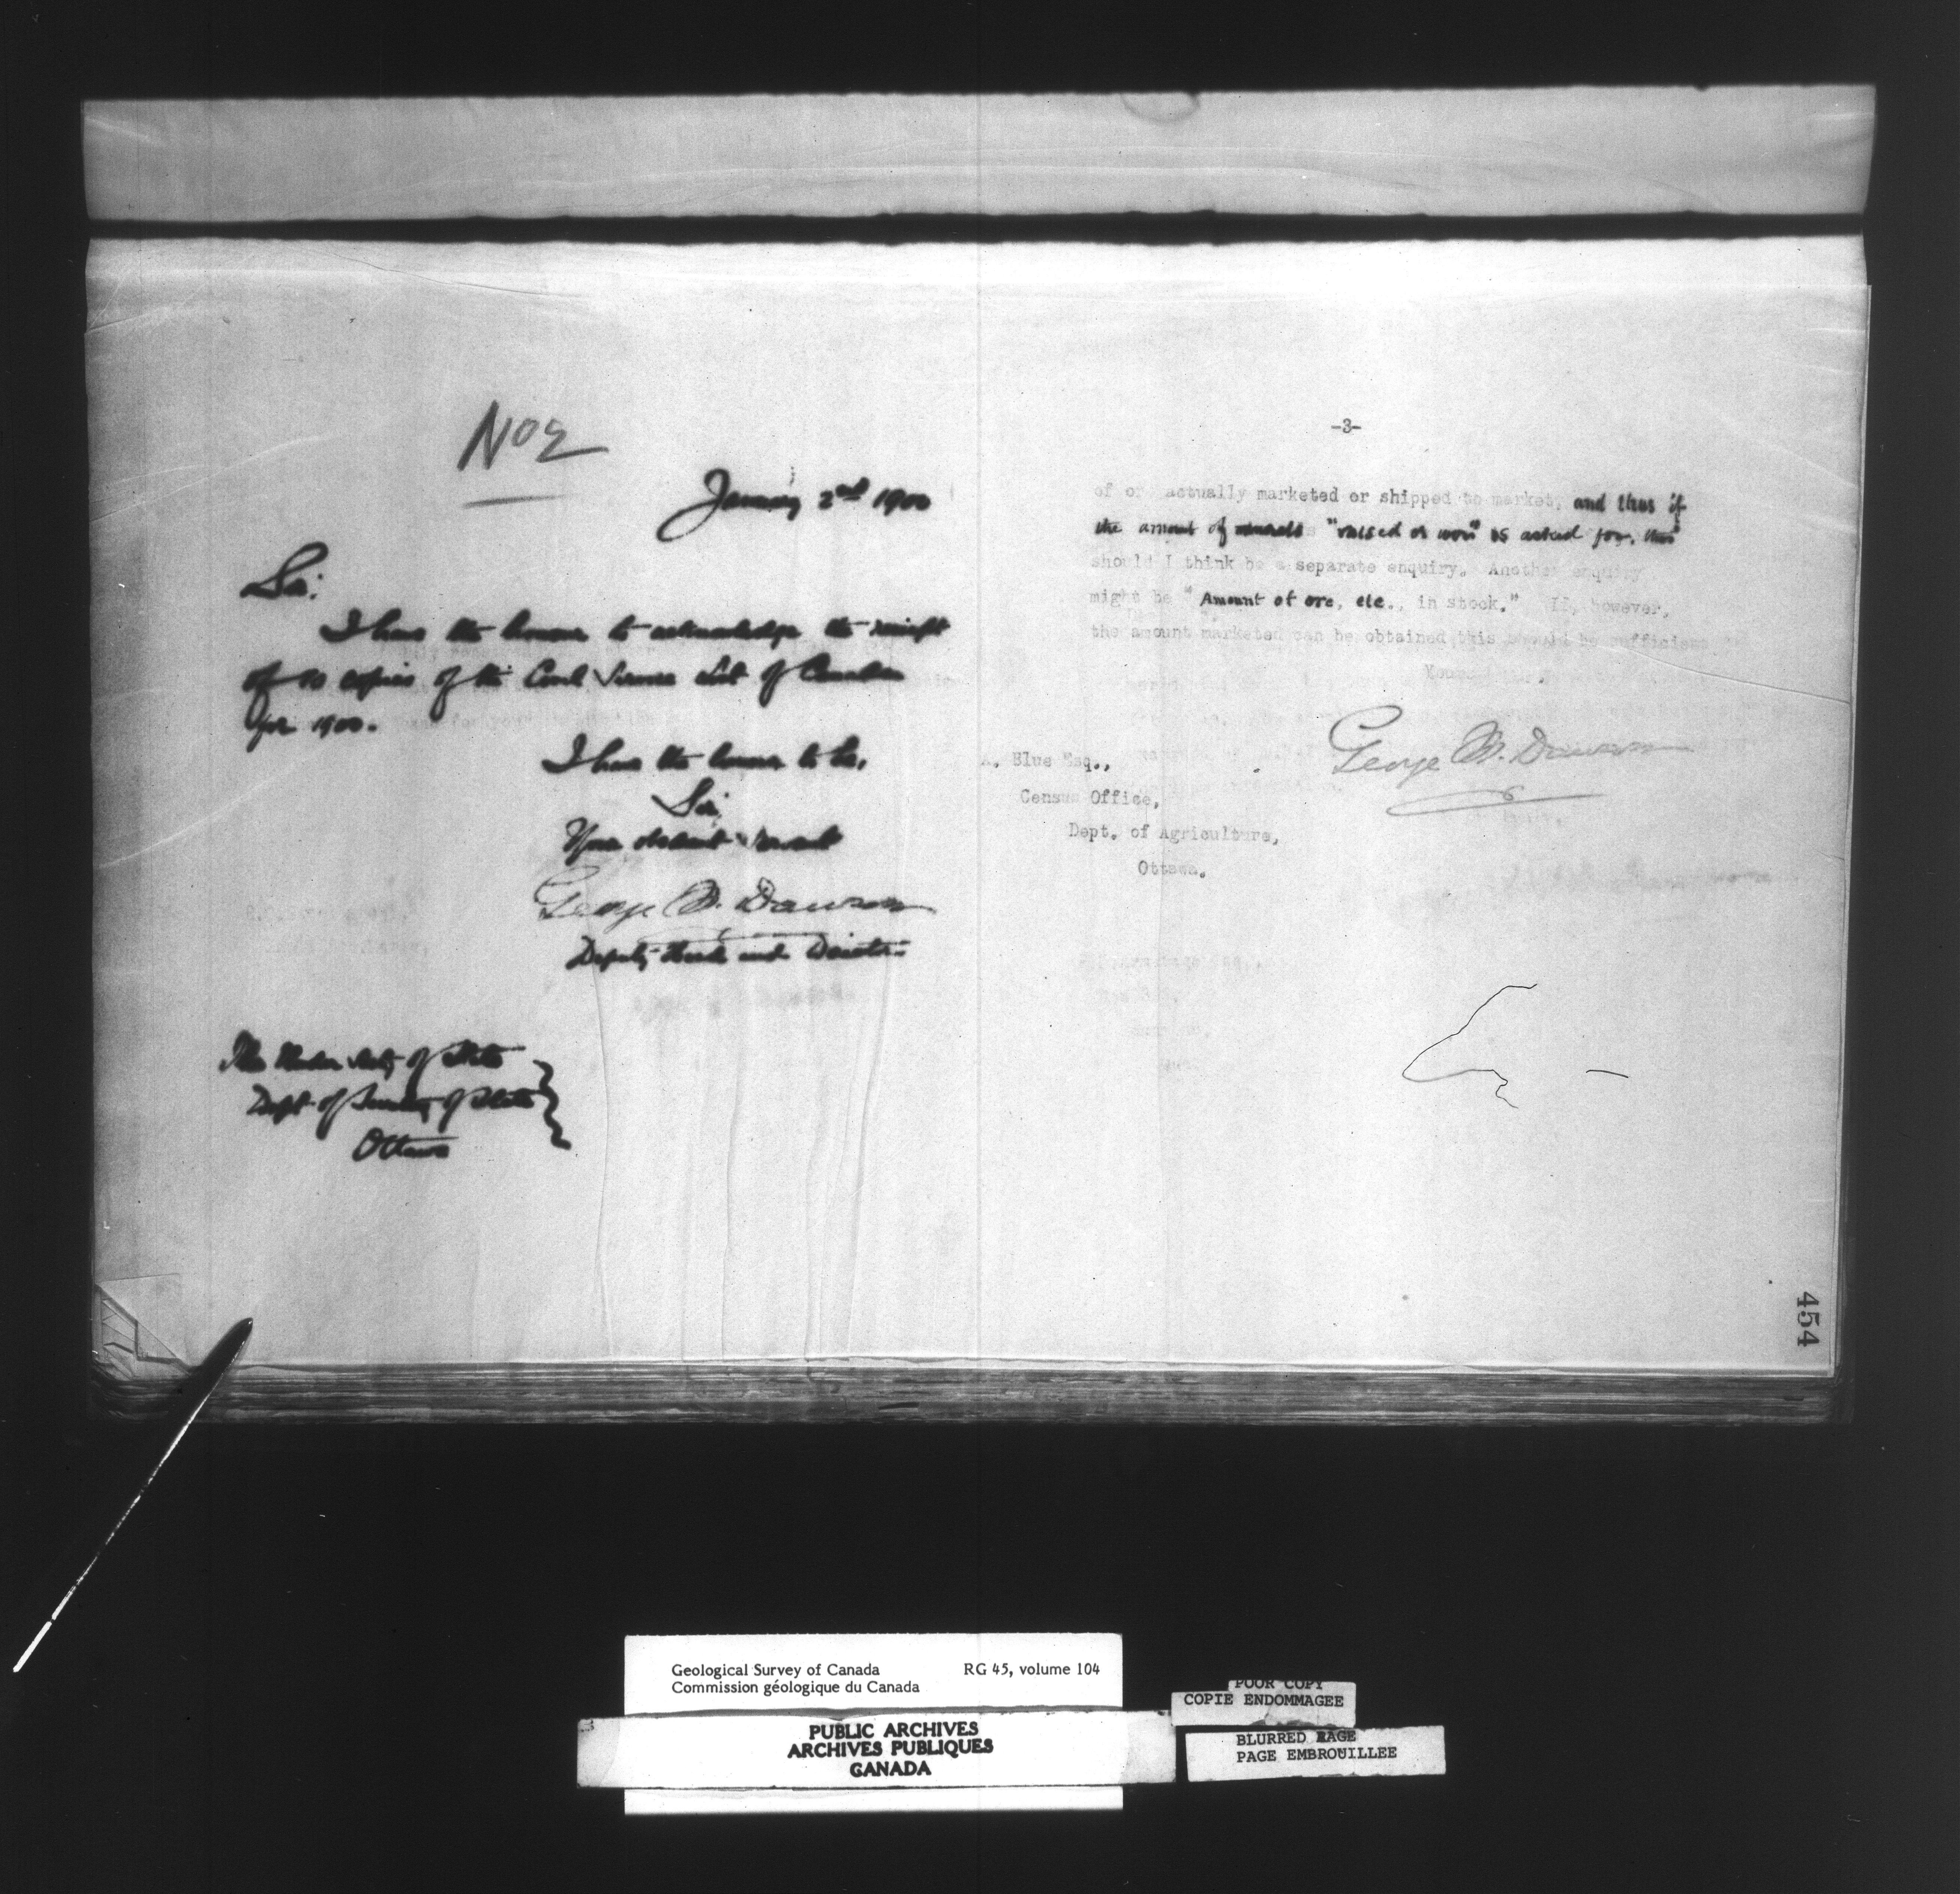 No 2
January 2nd 1900
Sir:
I have the honour to acknowledge the receipt
of 10 copies of the Civil Service List of Canada
for 1900.
I have the honour to be,
Sir,
Your obedient servant
George M. Dawson
Deputy Head and Director
The Under Secty of State
Dept of Secretary of State
Ottawa
-3-
of or actually marketed or shipped to market, and thus if
the amount of minerals "raised or won" is asked for, this
should I think be a separate enquiry. Another enquiry
might be "Amount of ore, etc., in stock." If, however,
the amount marketed can be obtained this should be sufficient
George M. Dawson
A. Blue Esq.,
Census Office,
Dept. of Agriculture,
Ottawa.
454
Geological Survey of Canada RG 45, volume 104
Commission géologique du Canada
PUBLIC ARCHIVES
ARCHIVES PUBLIQUES
CANADA
POOR COPY
COPIE ENDOMMAGEE
BLURRED PAGE
PAGE EMBROUILLEE